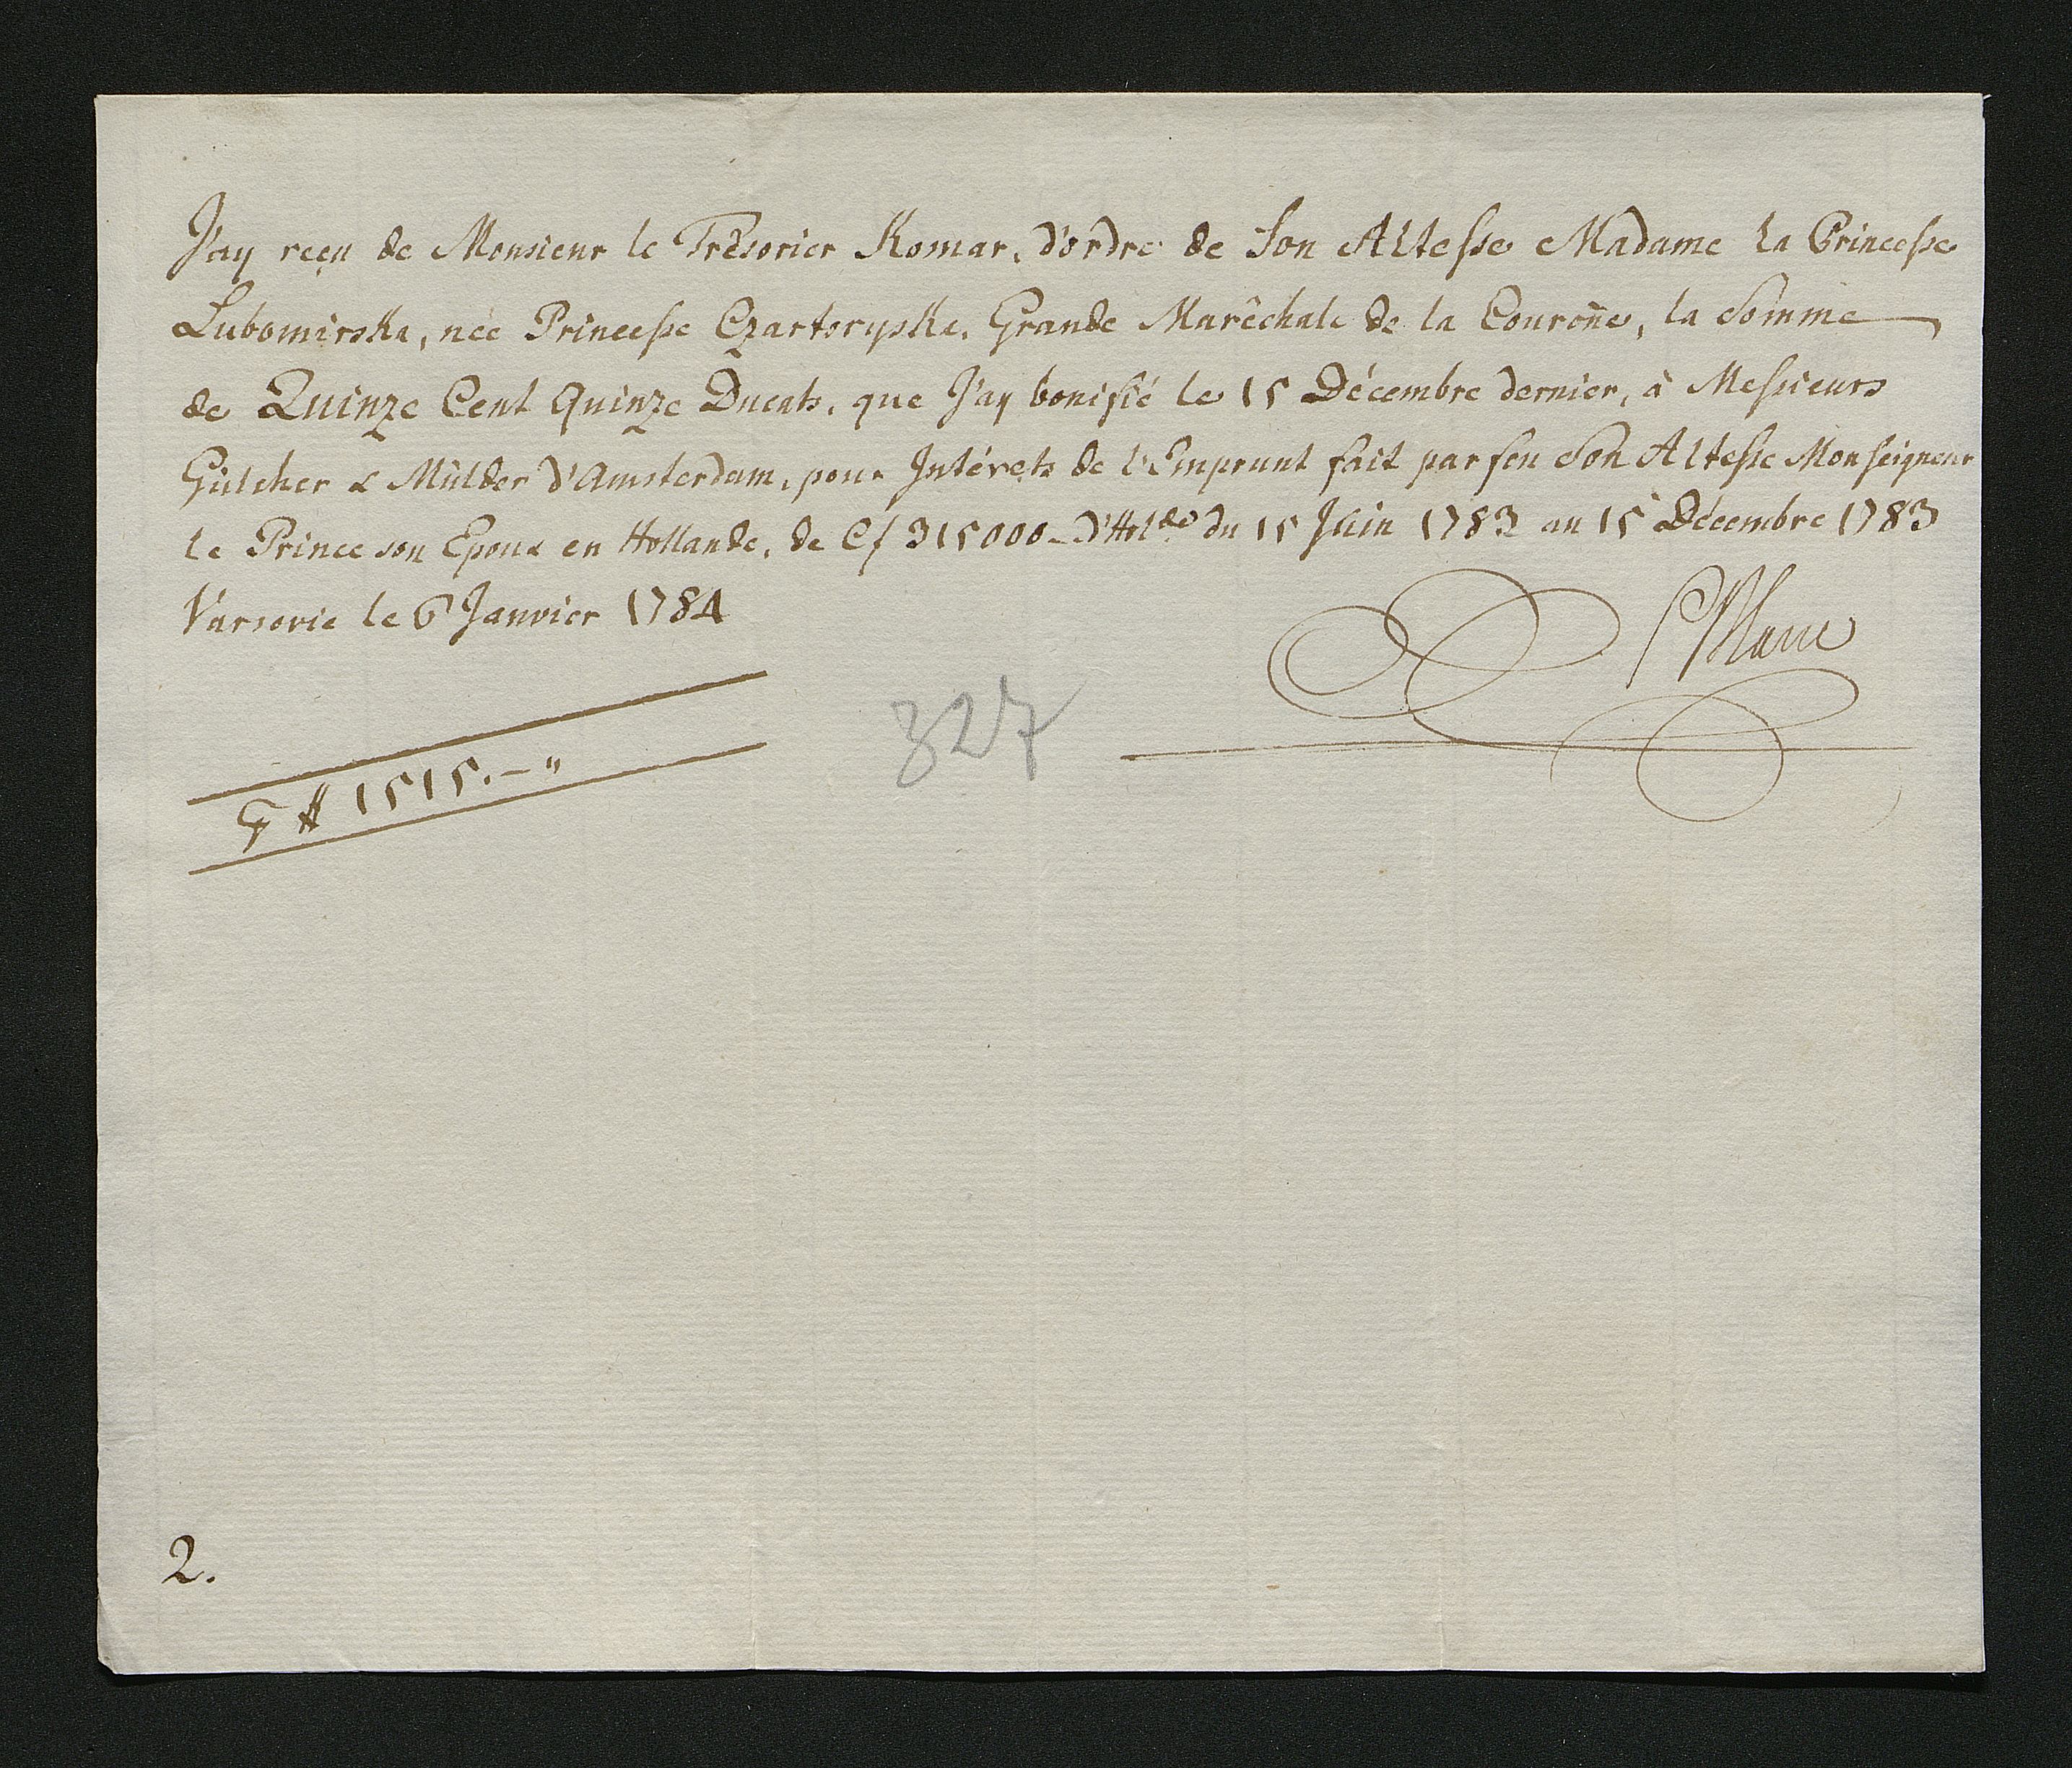 J'ay reçu de Monsieur le Trêsorier Komar, d'ordre de Son Altesse Madame la Princesse
Lubomirska, née Princesse Czartoryska, Grande Marêchale de la Couroñe, la Somme
de Quinze Cent Quinze Ducats, que J'ay bonifié le 15 Décembre dernier, à Messieurs
Gülcher & Mülder d'Amsterdam, pour Intérets de l'Emprunt fait par feu Son Altesse Monseigneur
le Prince son Epoux en Hollande, de Cf 315000_ d'Holde du 15 Juin 1783 au 15 Décembre 1783
Varsovie le 6 Janvier 1784
# 1515.-"
327
2.